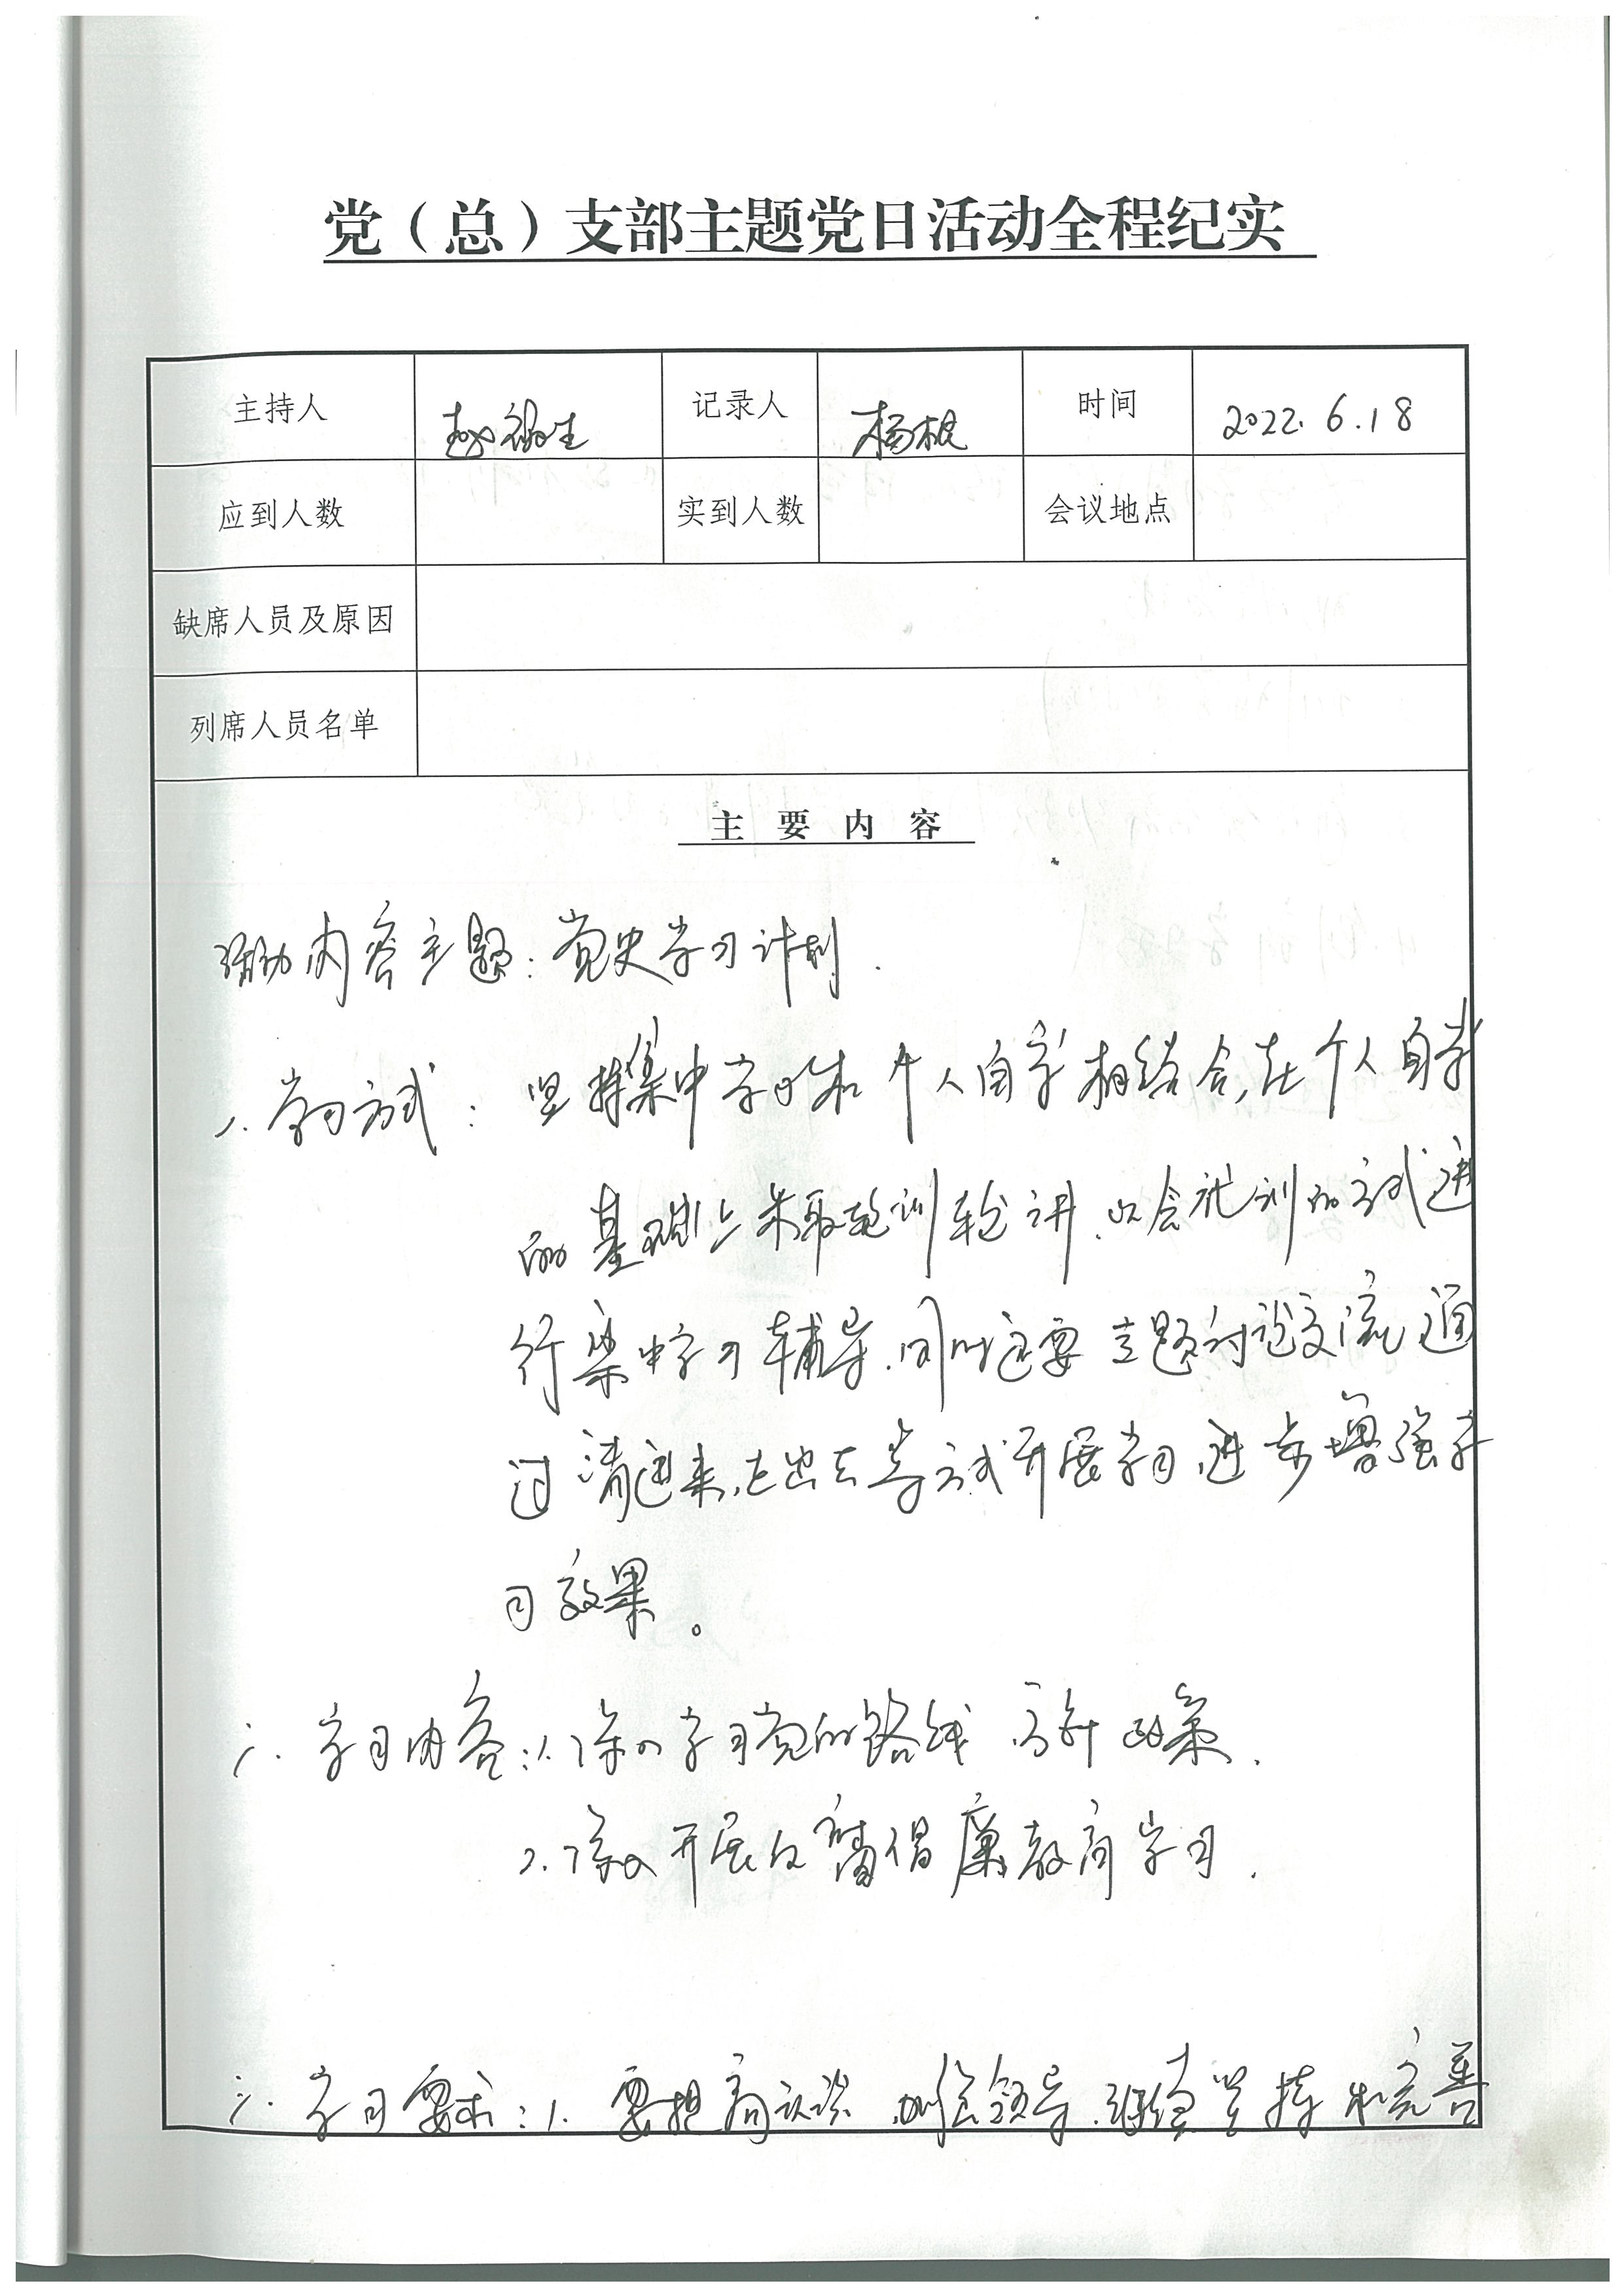 党（总）支部主题党日活动全程纪实
主持人 赵禄生 记录人 杨根 时间 2022.6.18
应到人数 实到人数 会议地点
缺席人员及原因
列席人员名单
主要内容
活动内容主题：党史学习计划.
一.学习方式：坚持集中学习和个人自学相结合,在个人自学
的基础上采取轮训轮讲.以会代训的方式进
行集中学习辅导.同时还要主题讨论交流通
过请进来,走出去等方式开展学习,进步增强学
习效果。
二.学习内容：1.深入学习党的路线方针政策.
2.深入开展反腐倡廉教育学习.
三.学习要求：1.要提高认识,加强领导.继续坚持和完善